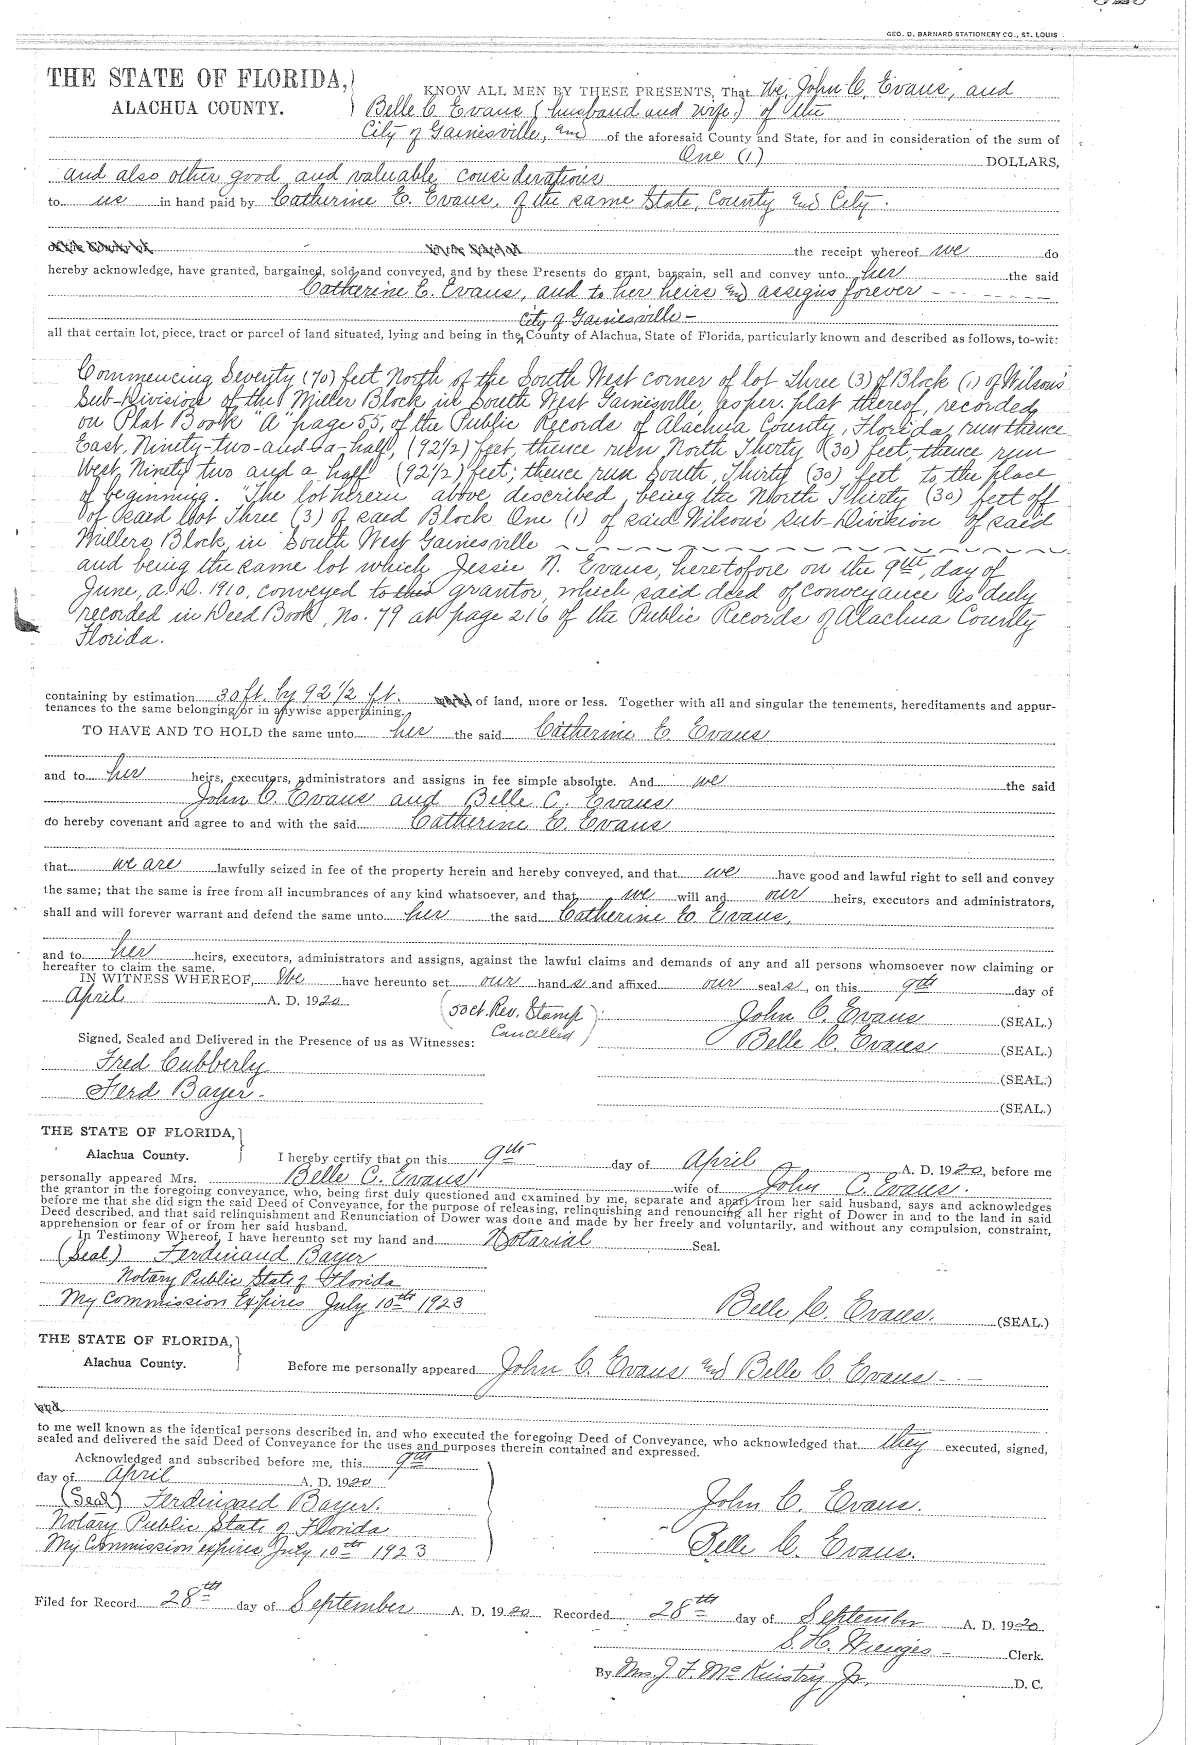 GEO. D. BARNARD STATIONERY CO., ST. LOUIS
THE STATE OF FLORIDA,
ALACHUA COUNTY.
KNOW ALL MEN BY THESE PRESENTS, That We, John C. Evans, and
Belle C Evans (husband and wife) of the
City of Gainesville, and of the aforesaid County and State, for and in consideration of the sum of
One (1) DOLLARS,
and also other good and valuable considerations
to us in hand paid by Catherine E. Evans, of the same State, County and City.
of the County of in the State of the receipt whereof we do
hereby acknowledge, have granted, bargained, sold and conveyed, and by these Presents do grant, bargain, sell and convey unto her the said
Catherine E. Evans, and to her heirs and assigns forever
City of Gainesville -
all that certain lot, piece, tract or parcel of land situated, lying and being in the County of Alachua, State of Florida, particularly known and described as follows, to-wit:
Commencing Seventy (70) feet North of the South West corner of lot Three (3) of Block (1) of Wilson's
Sub-Division of the Miller Block in South West Gainesville, as per plat thereof, recorded
on Plat Book "A" page 55, of the Public Records of Alachua County, Florida, run thence
East, Ninety-two-and-a-half, (92 1/2) feet, thence run North Thirty (30) feet, thence run
West, Ninety two and a half (92 1/2) feet; thence run South, Thirty (30) feet to the place
of beginning. "The lot herein above described, being the North Thirty (30) feet off
of said lot Three (3) of said Block One (1) of said Wilsons' Sub-Division of said
Millers Block, in South West Gainesville
and being the same lot which Jessie N. Evans, heretofore on the 9th, day of
June, A.D. 1910, conveyed to this grantor, which said deed of conveyance is duly
recorded in Deed Book, No. 79 at page 216 of the Public Records of Alachua County
Florida.
containing by estimation 30 ft. by 92 1/2 ft. acres of land, more or less. Together with all and singular the tenements, hereditaments and appur-
tenances to the same belonging or in anywise appertaining.
TO HAVE AND TO HOLD the same unto her the said Catherine E. Evans
and to her heirs, executors, administrators and assigns in fee simple absolute. And we the said
John C. Evans and Belle C. Evans
do hereby covenant and agree to and with the said Catherine E. Evans
that we are lawfully seized in fee of the property herein and hereby conveyed, and that we have good and lawful right to sell and convey
the same; that the same is free from all incumbrances of any kind whatsoever, and that we will and our heirs, executors and administrators,
shall and will forever warrant and defend the same unto her the said Catherine E. Evans,
and to her heirs, executors, administrators and assigns, against the lawful claims and demands of any and all persons whomsoever now claiming or
hereafter to claim the same.
IN WITNESS WHEREOF, We have hereunto set our hands and affixed our seals, on this 9th day of
April A. D. 1920
(50 ct. Rev. Stamp
Cancelled)
John C. Evans (SEAL.)
Signed, Sealed and Delivered in the Presence of us as Witnesses:
Belle C. Evans (SEAL.)
Fred Cubberly
(SEAL.)
Ferd Bayer.
(SEAL.)
THE STATE OF FLORIDA,
Alachua County.
I hereby certify that on this 9th day of April A. D. 1920, before me
personally appeared Mrs. Belle C. Evans wife of John C. Evans.
the grantor in the foregoing conveyance, who, being first duly questioned and examined by me, separate and apart from her said husband, says and acknowledges
before me that she did sign the said Deed of Conveyance, for the purpose of releasing, relinquishing and renouncing all her right of Dower in and to the land in said
Deed described, and that said relinquishment and Renunciation of Dower was done and made by her freely and voluntarily, and without any compulsion, constraint,
apprehension or fear of or from her said husband.
In Testimony Whereof, I have hereunto set my hand and Notarial Seal.
(Seal) Ferdinand Bayer
Notary Public State of Florida
My Commission Expires July 10th 1923
Belle C. Evans. (SEAL.)
THE STATE OF FLORIDA,
Alachua County.
Before me personally appeared John C. Evans and Belle C. Evans
and
to me well known as the identical persons described in, and who executed the foregoing Deed of Conveyance, who acknowledged that they executed, signed,
sealed and delivered the said Deed of Conveyance for the uses and purposes therein contained and expressed.
Acknowledged and subscribed before me, this 9th
day of April A. D. 1920
(Seal) Ferdinand Bayer.
Notary Public State of Florida
My Commission expires July 10th 1923
John C. Evans.
Belle C. Evans.
Filed for Record 28th day of September A. D. 1920 Recorded 28th day of September A. D. 1920
S. H. Wienges - Clerk.
By Mrs. J F. McKinstry Jr. D. C.